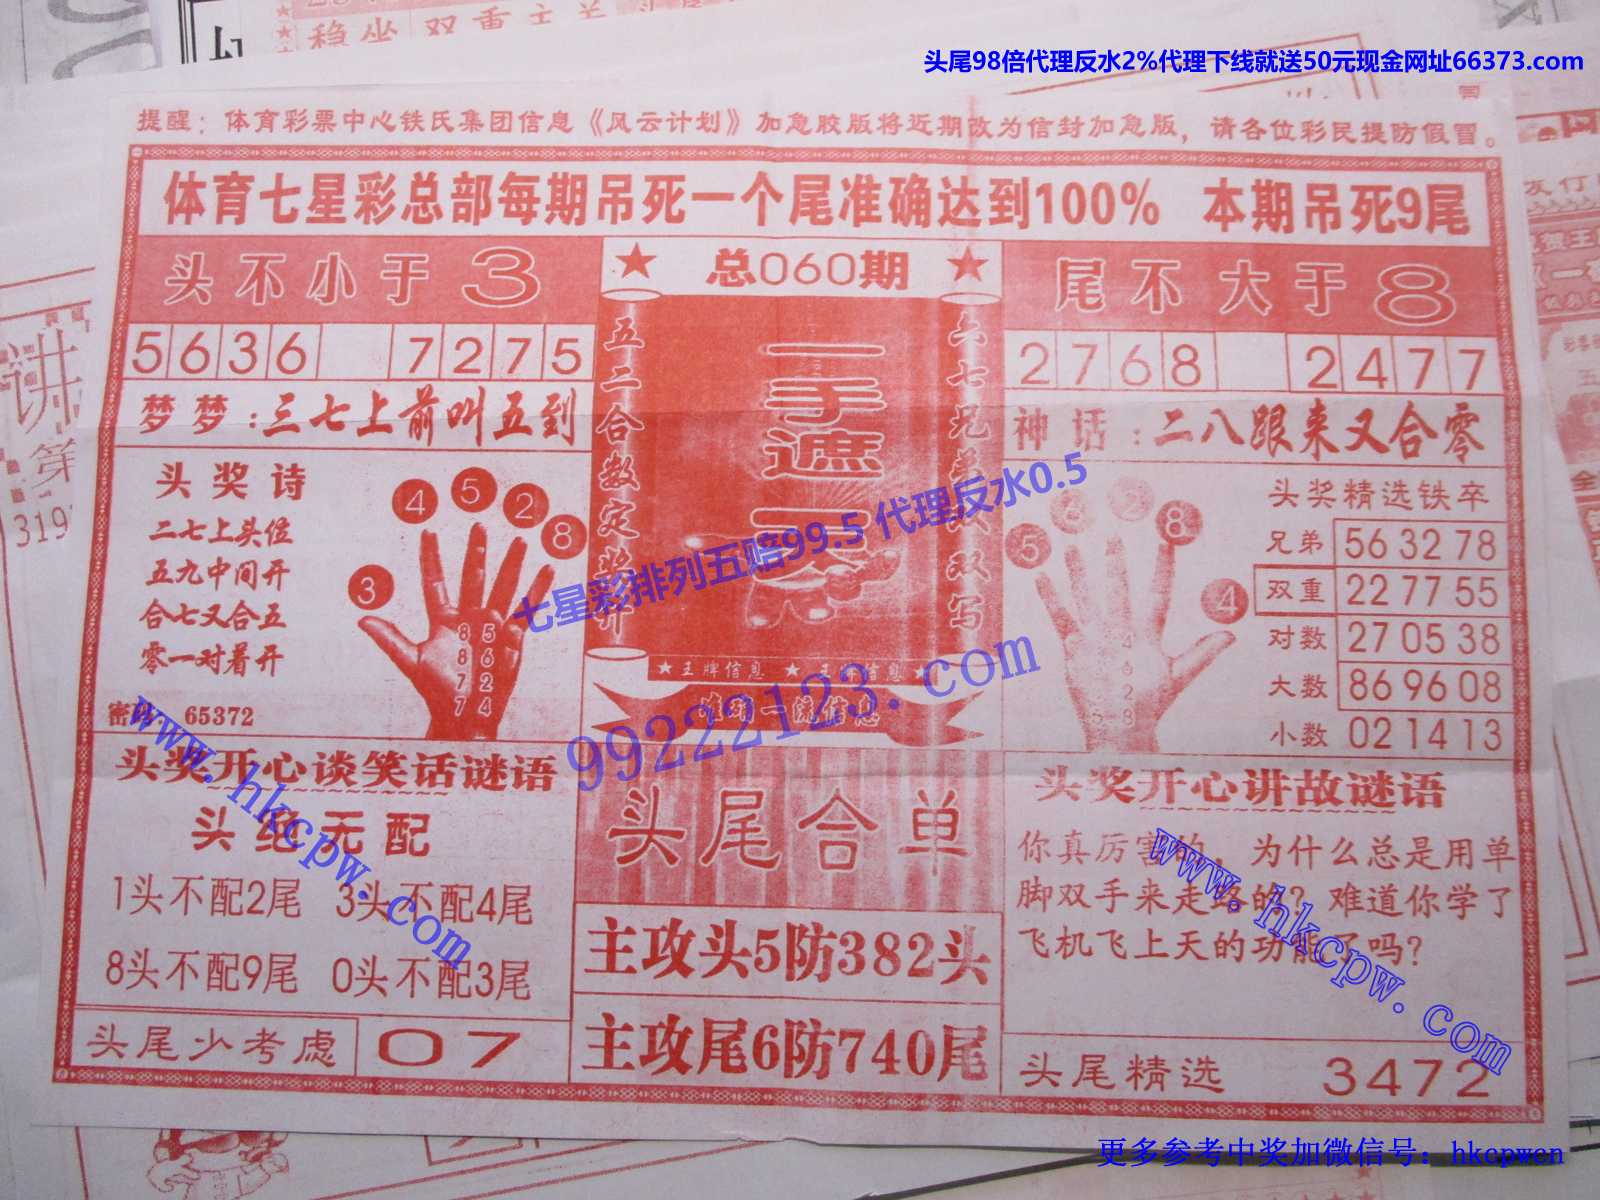 稳坐双重主关头尾
头尾98倍代理反水2%代理下线就送50元现金网址66373.com
提醒：体育彩票中心铁氏集团信息《风云计划》加急胶版将近期改为信封加急版，请各位彩民提防假冒。
体育七星彩总部每期吊死一个尾准确达到100% 本期吊死9尾
头不小于3
★ 总060期 ★
尾不大于8
5636 7275
2768 2477
梦梦：三七上前叫五到
神话：二八跟来又合零
五二合数定奖开
一手遮天
六七兄弟头双写
头奖诗
二七上头位
五九中间开
合七又合五
零一对着开
密码：65372
3 4 5 2 8
8 5
8 6
7 2
7 4
5 6 2 8 4
4
0
2
8
头奖精选铁卒
兄弟 563278
双重 227755
对数 270538
大数 869608
小数 021413
七星彩排列五赔99.5 代理反水0.5
★王牌信息 ★王牌信息★
准确一流信息
99222123.com
www.hkcpw.com
头奖开心谈笑话谜语
头绝无配
1头不配2尾 3头不配4尾
8头不配9尾 0头不配3尾
头尾少考虑 07
头尾合单
主攻头5防382头
主攻尾6防740尾
头奖开心讲故谜语
你真厉害的，为什么总是用单
脚双手来走路的？难道你学了
飞机飞上天的功能了吗？
www.hkcpw.com
头尾精选 3472
更多参考中奖加微信号：hkcpwcn
讲
第
319